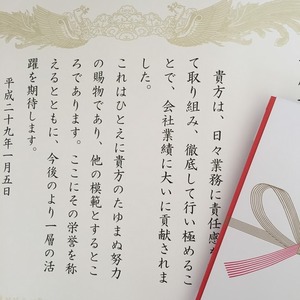 貴方は、日々業務に責任感
て取り組み、徹底して行い極めるこ
とで、会社業績に大いに貢献されま
した。
これはひとえに貴方のたゆまぬ努力
の賜物であり、他の模範とするとこ
ろであります。ここにその栄誉を称
えるとともに、今後のより一層の活
躍を期待します。
平成二十九年一月五日